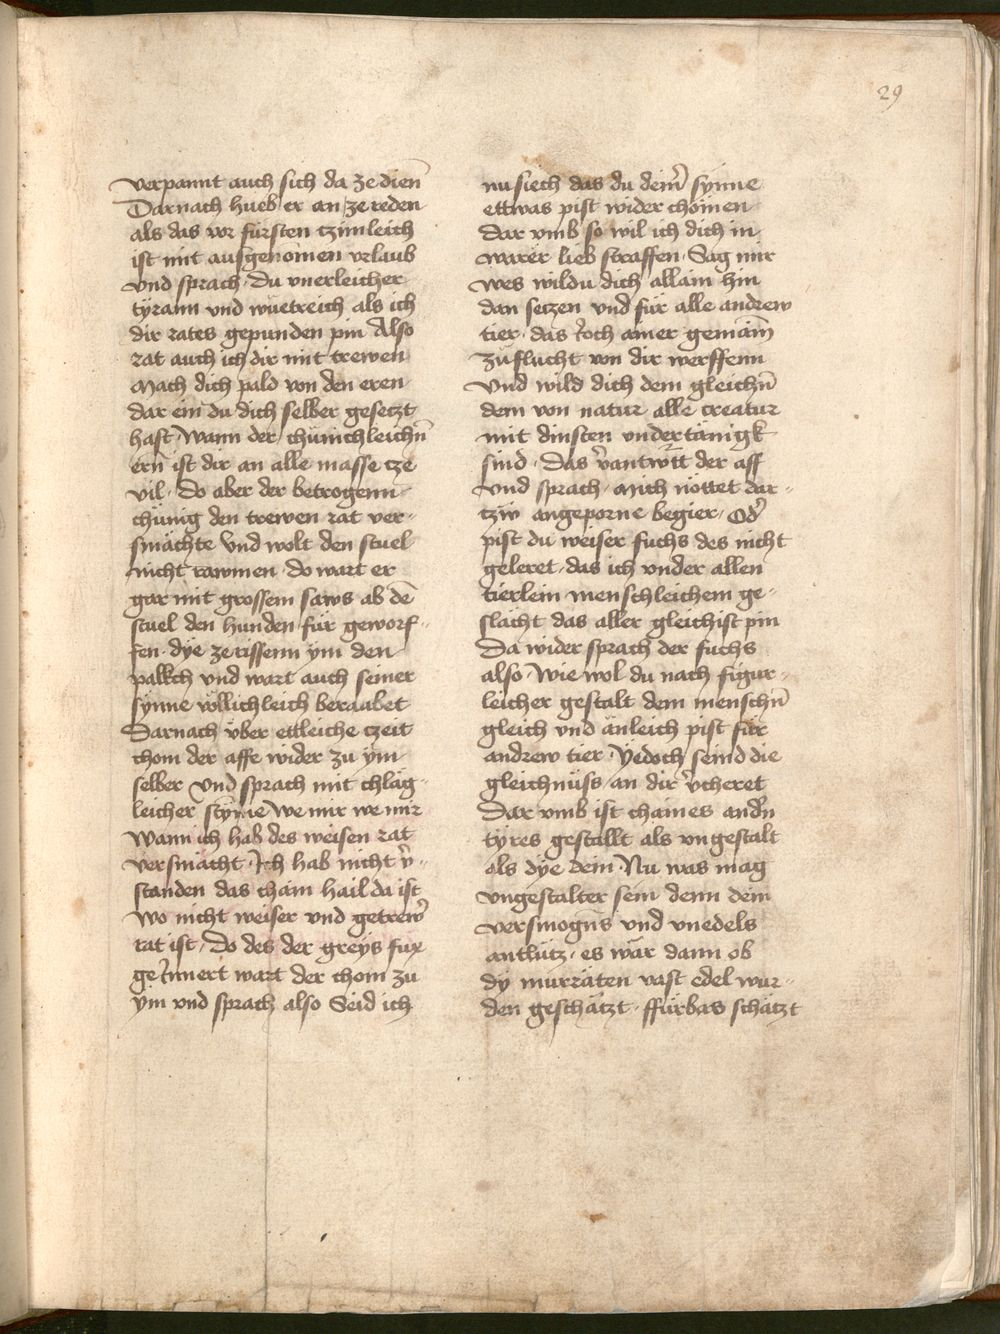 29
verpannt auch sich da ze dien̄
Darnach hueb er an ze reden
als das vor fürsten czimleich
ist mit ausgenomen vrlaub
vnd sprach · Du vnerleicher
tyrann vnd wüetreich als ich
dir rates gepunden pin Also
rat auch ich dir mit trewen
Mach dich pald von den eren
dar ein du dich selber geseczt
hast · Wann der chünichleichn̄
ern̄ ist dir an alle masse cze
vil · do aber der betrogenn
chünig den trewen rat ver-
smächte Vnd wolt den stuel
nicht rawmen · do wart er
gar mit grossem saws ab dē
stuel den hunden für geworf-
fen · dÿe zerissenn ym den
palkch vnd wart auch seiner
synne völlichleich beraabet
Darnach über ettleiche czeit
chom der affe wider zu ym
selber Vnd sprach mit chläg-
leicher stÿme We mir we mir
Wann ich hab des weisen rat
versmächt · Ich hab nicht v̾-
standen das cham hail da ist
wo nicht weiser vnd getrew̾
rat ist · Do des der greÿs fux
gein̄ert wart der chom zu
ym vnd sprach also Seid ich
nu siech das du dein̾ synne
ettwas pist wider chömen
Dar vmb so wil ich dich in
warer lieb straffen · Sag mir
wes wildu dich allain hin
dan seczen vnd für alle andrew
tier · das doch ainer gemaim̄
züflucht von dir werffenn
Vnd wild dich dem gleichn̄
dem von natur alle creatur
mit dinsten vndertänigk
sind · Das v̾antwtt der aff
Vnd sprach · Mich nöttet dar-
tzw angeporne begier · Od̾
pist du weiser fuchs des nicht
geleret · das ich vnder allen
tierlein menschleichem ge-
slächt das aller gleichist pin
Da wider sprach der fuchs
also · Wie wol du nach figur-
leicher gestalt dem menschn̄
gleich vnd änleich pist für
andrew tier · Yedoch seind die
gleichnüss an dir v̾cheret
Dar vmb ist chaines andn̄
tÿres gestallt als vngestalt
als dÿe dein · Nu was mag
vngestalter sein denn dein
versmogn̄s vnd vnedels
antlütz · es wär dann ob
dÿ murräten vast edel wur-
den geschätzt · ffürbas schätzt